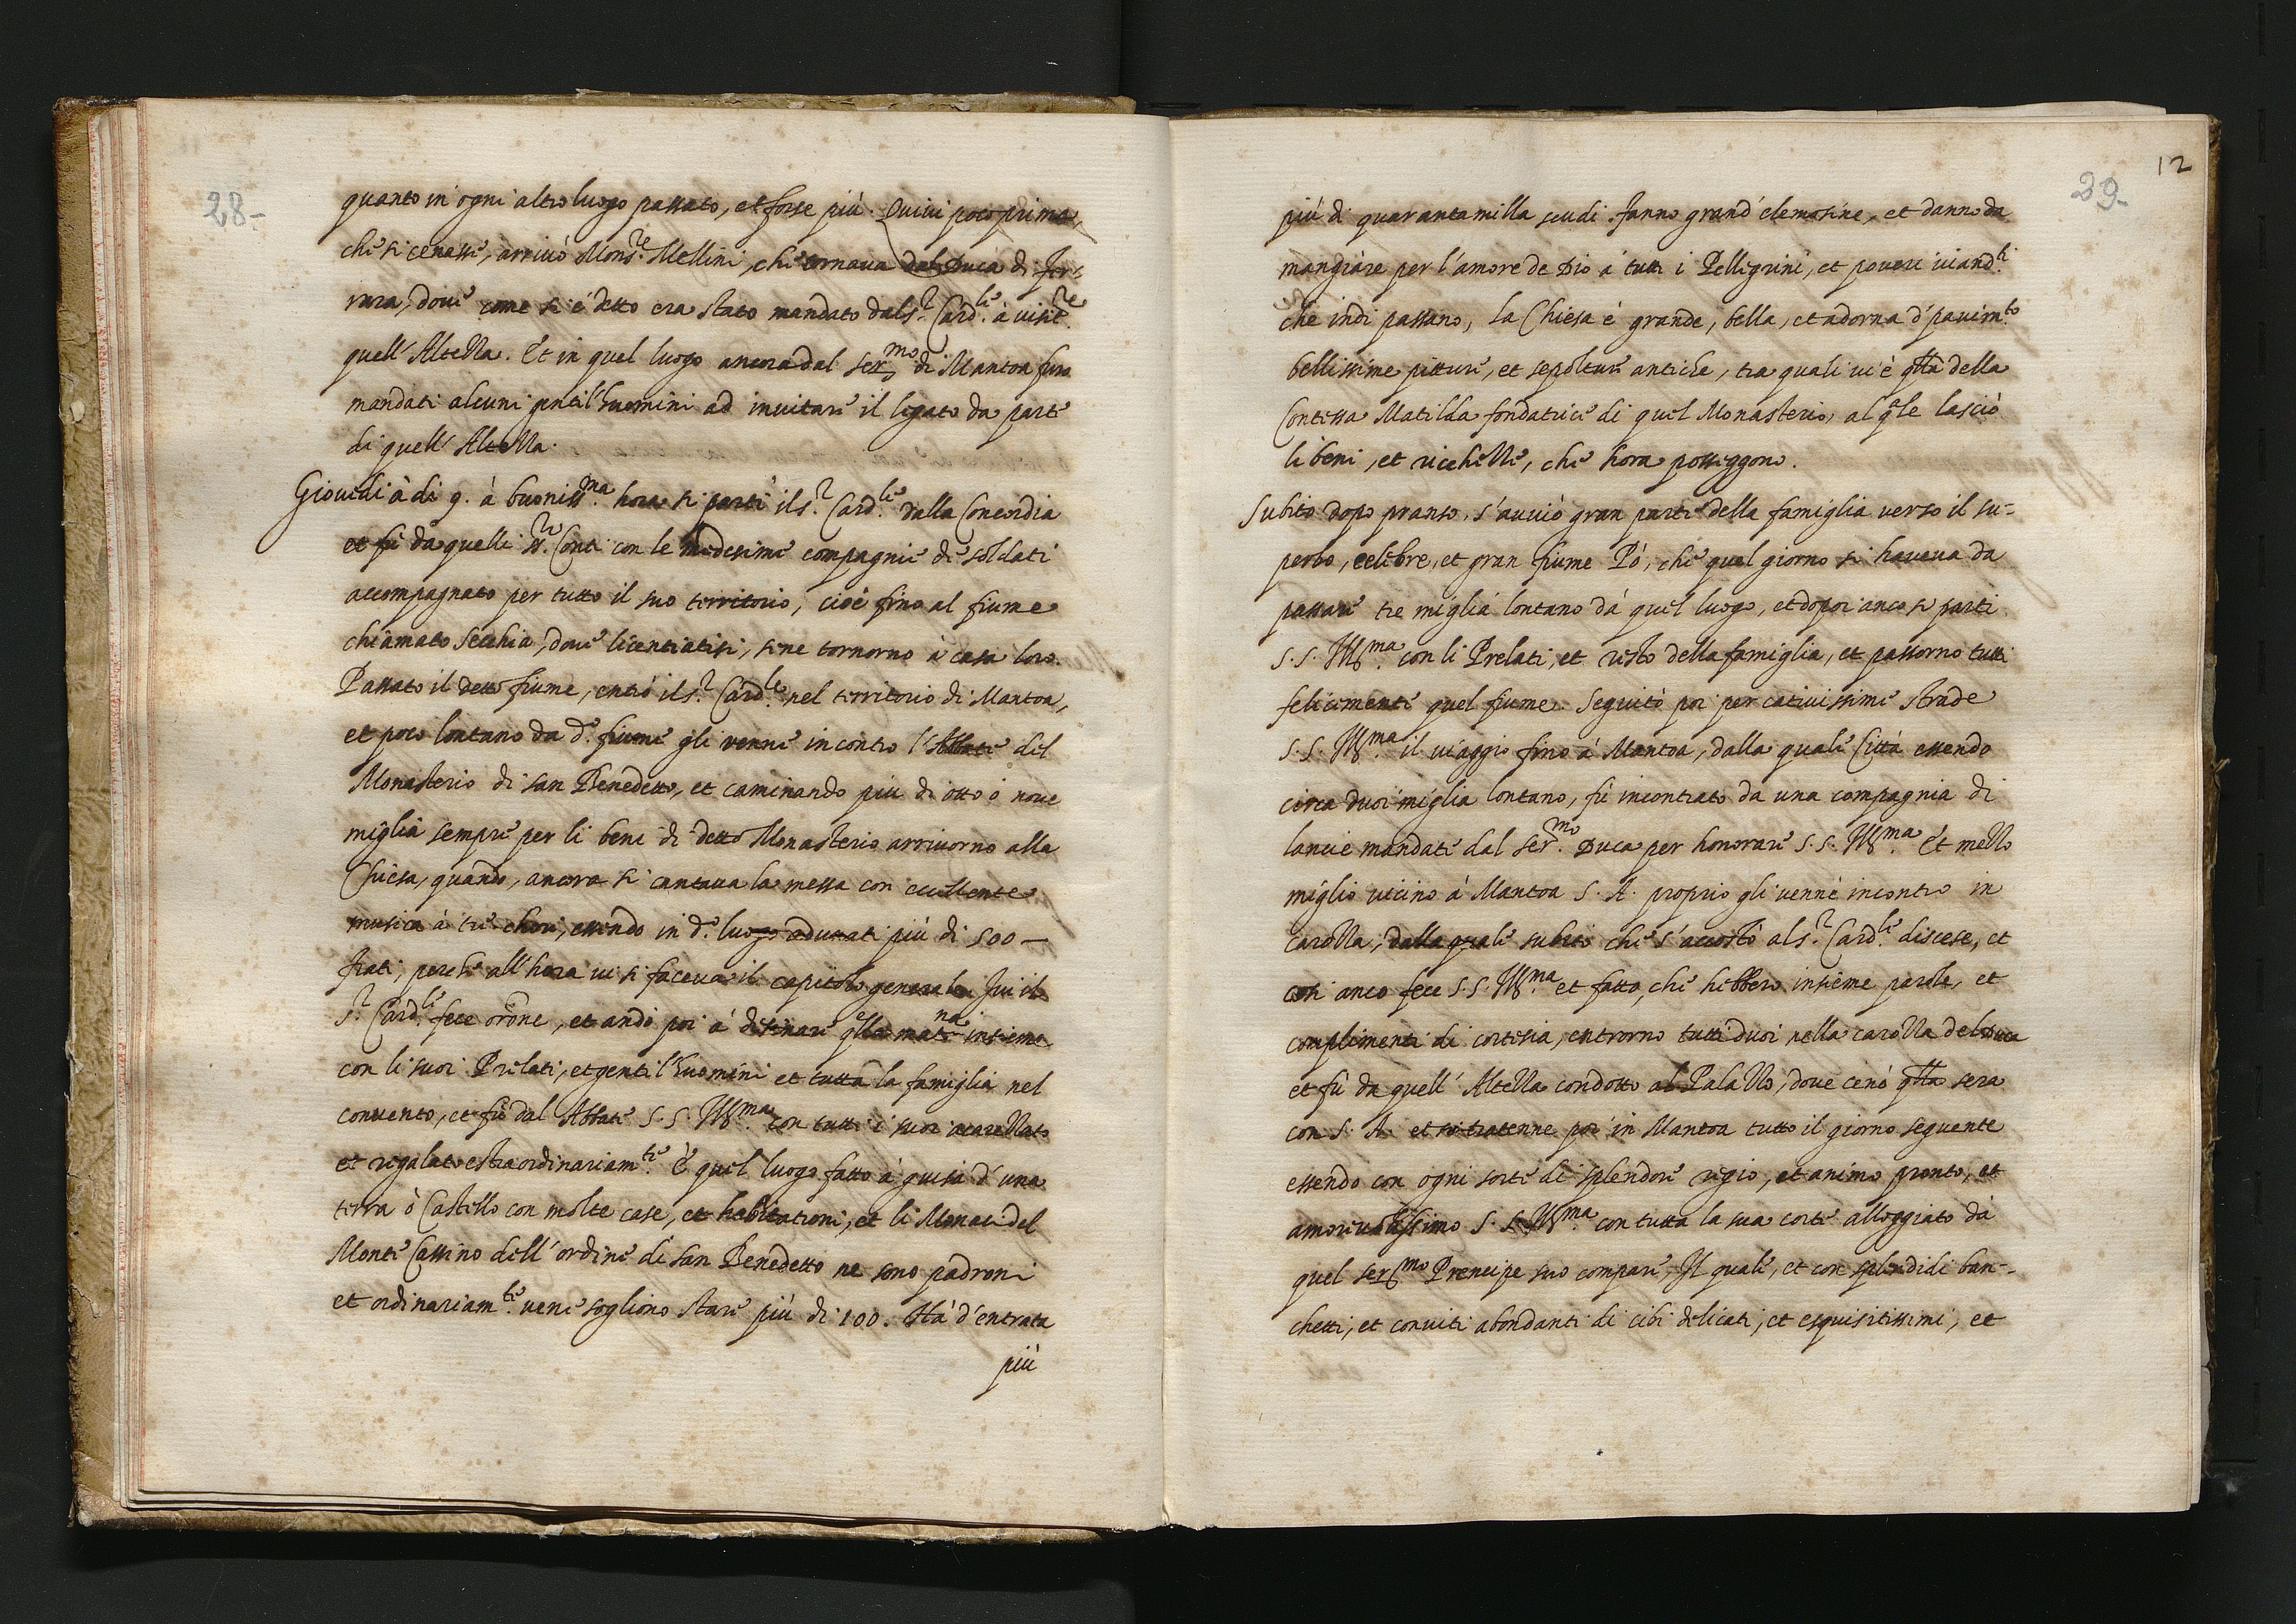 28-
quanto in ogni altro luogo passato, et forse più. Quivi poco prima,
che si cenasse, arrivò Mons.re Mellini, che tornava dal Duca di Fer-
rara, dove come si è detto era stato mandato dal s.r Card.le à visit.re
quell'Altezza. Et in quel luogo ancora dal ser.mo di Mantoa furo
mandati alcuni gentil'huomini ad invitare il legato da parte
di quell'Altezza.
Giovedi à di 9. à buoniss.ma hora si partì il s.r Card.le dalla Concordia
et fù da quelli ss.ri Conti con le medesime compagnie di soldati
accompagnato per tutto il suo territorio, cioè fino al fiume
chiamato Secchia, dove licentiatisi, se ne tornorno à casa loro.
Passato il detto fiume, entrò il s.r Card.le nel territorio di Mantoa,
et poco lontano da d.o fiume gli venne incontro l'Abbate del
Monasterio di san Benedetto, et caminando più di otto ò nove
miglia sempre per li beni di detto Monasterio arrivorno alla
Chiesa, quando, ancora si cantava la messa con eccellente
musica à tre chori, essendo in d.o luogo adunati più di 500 -
frati, perche all'hora vi si faceva il capitolo generale. Ivi il
s.r Card.le fece orõne, et andò poi à desinare q̃lla mat.na insieme
con li suoi Prelati, et gentil'huomini et tutta la famiglia nel
convento, et fù dal Abbate S. S. Ill.ma con tutti i suoi accarezzato
et regalato estraordinariam.te È quel luogo fatto à guisa d'una
terra ò Castello con molte case, et habitationi, et li Monaci del
Monte Cassino dell'ordine di san Benedetto ne sono padroni
et ordinariam.te vene sogliono stare più di 100. Hà d'entrata
più
12
29-
più di quarantamilla scudi. Fanno grand'elemosine, et danno da
mangiare per l'amore de Dio à tutti i Pellegrini, et poveri viand.ti
che indi passano, la Chiesa è grande, bella, et adorna d'pavim.to
bellissime pitture, et sepolture antiche, tra quali vi è q̃lla della
Contessa Matilda fondatrice di quel Monasterio, al q̃le lasciò
li beni, et ricchezze, che hora posseggono.
Subito dopo pranso, s'avviò gran parte della famiglia verso il su-
perbo, celebre, et gran fiume Pò, che quel giorno si haveva da
passare tre miglia lontano dà quel luogo, et dopoi anco si partì
S. S. Ill.ma con li Prelati, et resto della famiglia, et passorno tutti
felicemente quel fiume. Seguitò poi per cativissime strade
S. S. Ill.ma il viaggio fino à Mantoa, dalla quale Città essendo
circa duoi miglia lontano, fù incontrato da una compagnia di
lancie mandate dal ser.mo Duca per honorare S. S. Ill.ma Et mezzo
miglio vicino à Mantoa S. A. proprio gli venne incontro in
carozza, dalla quale subito che s'accostò al s.r Card.le discese, et
così anco fece S. S. Ill.ma et fatto, che hebbero insieme parole, et
complimenti di cortesia, entrorno tutti duoi nella carozza del Duca
et fù da quell'Altezza condotto al Palazzo, dove cenò q̃lla sera
con S. A. et si tratenne poi in Mantoa tutto il giorno seguente
essendo con ogni sorte di splendore regio, et animo pronto, et
amorevolissimo S. S. Ill.ma con tutta la sua corte alloggiato dà
quel ser.mo Prencipe suo compare, Il quale, et con splendidi ban-
chetti, et conviti abondanti di cibi delicati, et esquisitissimi, et